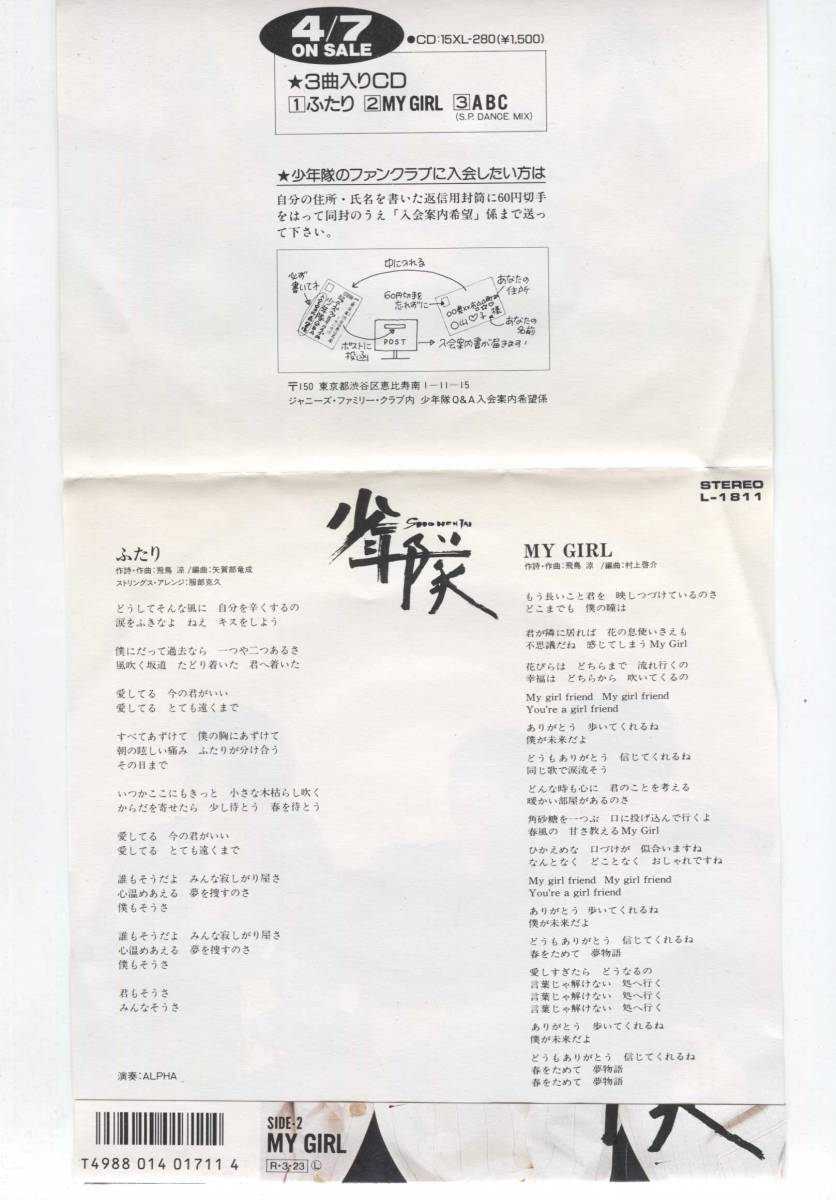 4/7
ON SALE
●CD:15XL-280(¥1,500)
★3曲入りCD
1ふたり 2MY GIRL 3ABC
(S.P. DANCE MIX)
★少年隊のファンクラブに入会したい方は
自分の住所・氏名を書いた返信用封筒に60円切手
をはって同封のうえ「入会案内希望」係まで送っ
て下さい。
中に入れる
必ず
書いてネ
60円切手を
忘れずに
あなたの
住所
あなたの
名前
ポストに
投函
POST
入会案内書が届きます!
〒150 東京都渋谷区恵比寿南1-11-15
ジャニーズ・ファミリー・クラブ内 少年隊Q&A入会案内希望係
STEREO
L-1811
少年隊
SHOONENTAI
ふたり
作詩・作曲:飛鳥 涼/編曲:矢賀部竜成
ストリングス・アレンジ:服部克久
どうしてそんな風に 自分を辛くするの
涙をふきなよ ねえ キスをしよう
僕にだって過去なら 一つや二つあるさ
風吹く坂道 たどり着いた 君へ着いた
愛してる 今の君がいい
愛してる とても遠くまで
すべてあずけて 僕の胸にあずけて
朝の眩しい痛み ふたりが分け合う
その日まで
いつかここにもきっと 小さな木枯らし吹く
からだを寄せたら 少し待とう 春を待とう
愛してる 今の君がいい
愛してる とても遠くまで
誰もそうだよ みんな寂しがり屋さ
心温めあえる 夢を捜すのさ
僕もそうさ
誰もそうだよ みんな寂しがり屋さ
心温めあえる 夢を捜すのさ
僕もそうさ
君もそうさ
みんなそうさ
演奏:ALPHA
MY GIRL
作詩・作曲:飛鳥 涼 /編曲:村上啓介
もう長いこと君を 映しつづけているのさ
どこまでも 僕の瞳は
君が隣に居れば 花の息使いさえも
不思議だね 感じてしまうMy Girl
花びらは どちらまで 流れ行くの
幸福は どちらから 吹いてくるの
My girl friend My girl friend
You're a girl friend
ありがとう 歩いてくれるね
僕が未来だよ
どうもありがとう 信じてくれるね
同じ歌で涙流そう
どんな時も心に 君のことを考える
暖かい部屋があるのさ
角砂糖を一つぶ 口に投げ込んで行くよ
春風の 甘さ教えるMy Girl
ひかえめな 口づけが 似合いますね
なんとなく どことなく おしゃれですね
My girl friend My girl friend
You're a girl friend
ありがとう 歩いてくれるね
僕が未来だよ
どうもありがとう 信じてくれるね
春をためて 夢物語
愛しすぎたら どうなるの
言葉じゃ解けない 処へ行く
言葉じゃ解けない 処へ行く
言葉じゃ解けない 処へ行く
ありがとう 歩いてくれるね
僕が未来だよ
どうもありがとう 信じてくれるね
春をためて 夢物語
春をためて 夢物語
T4988 014 01711 4
SIDE-2
MY GIRL
R・3・23 Ⓛ